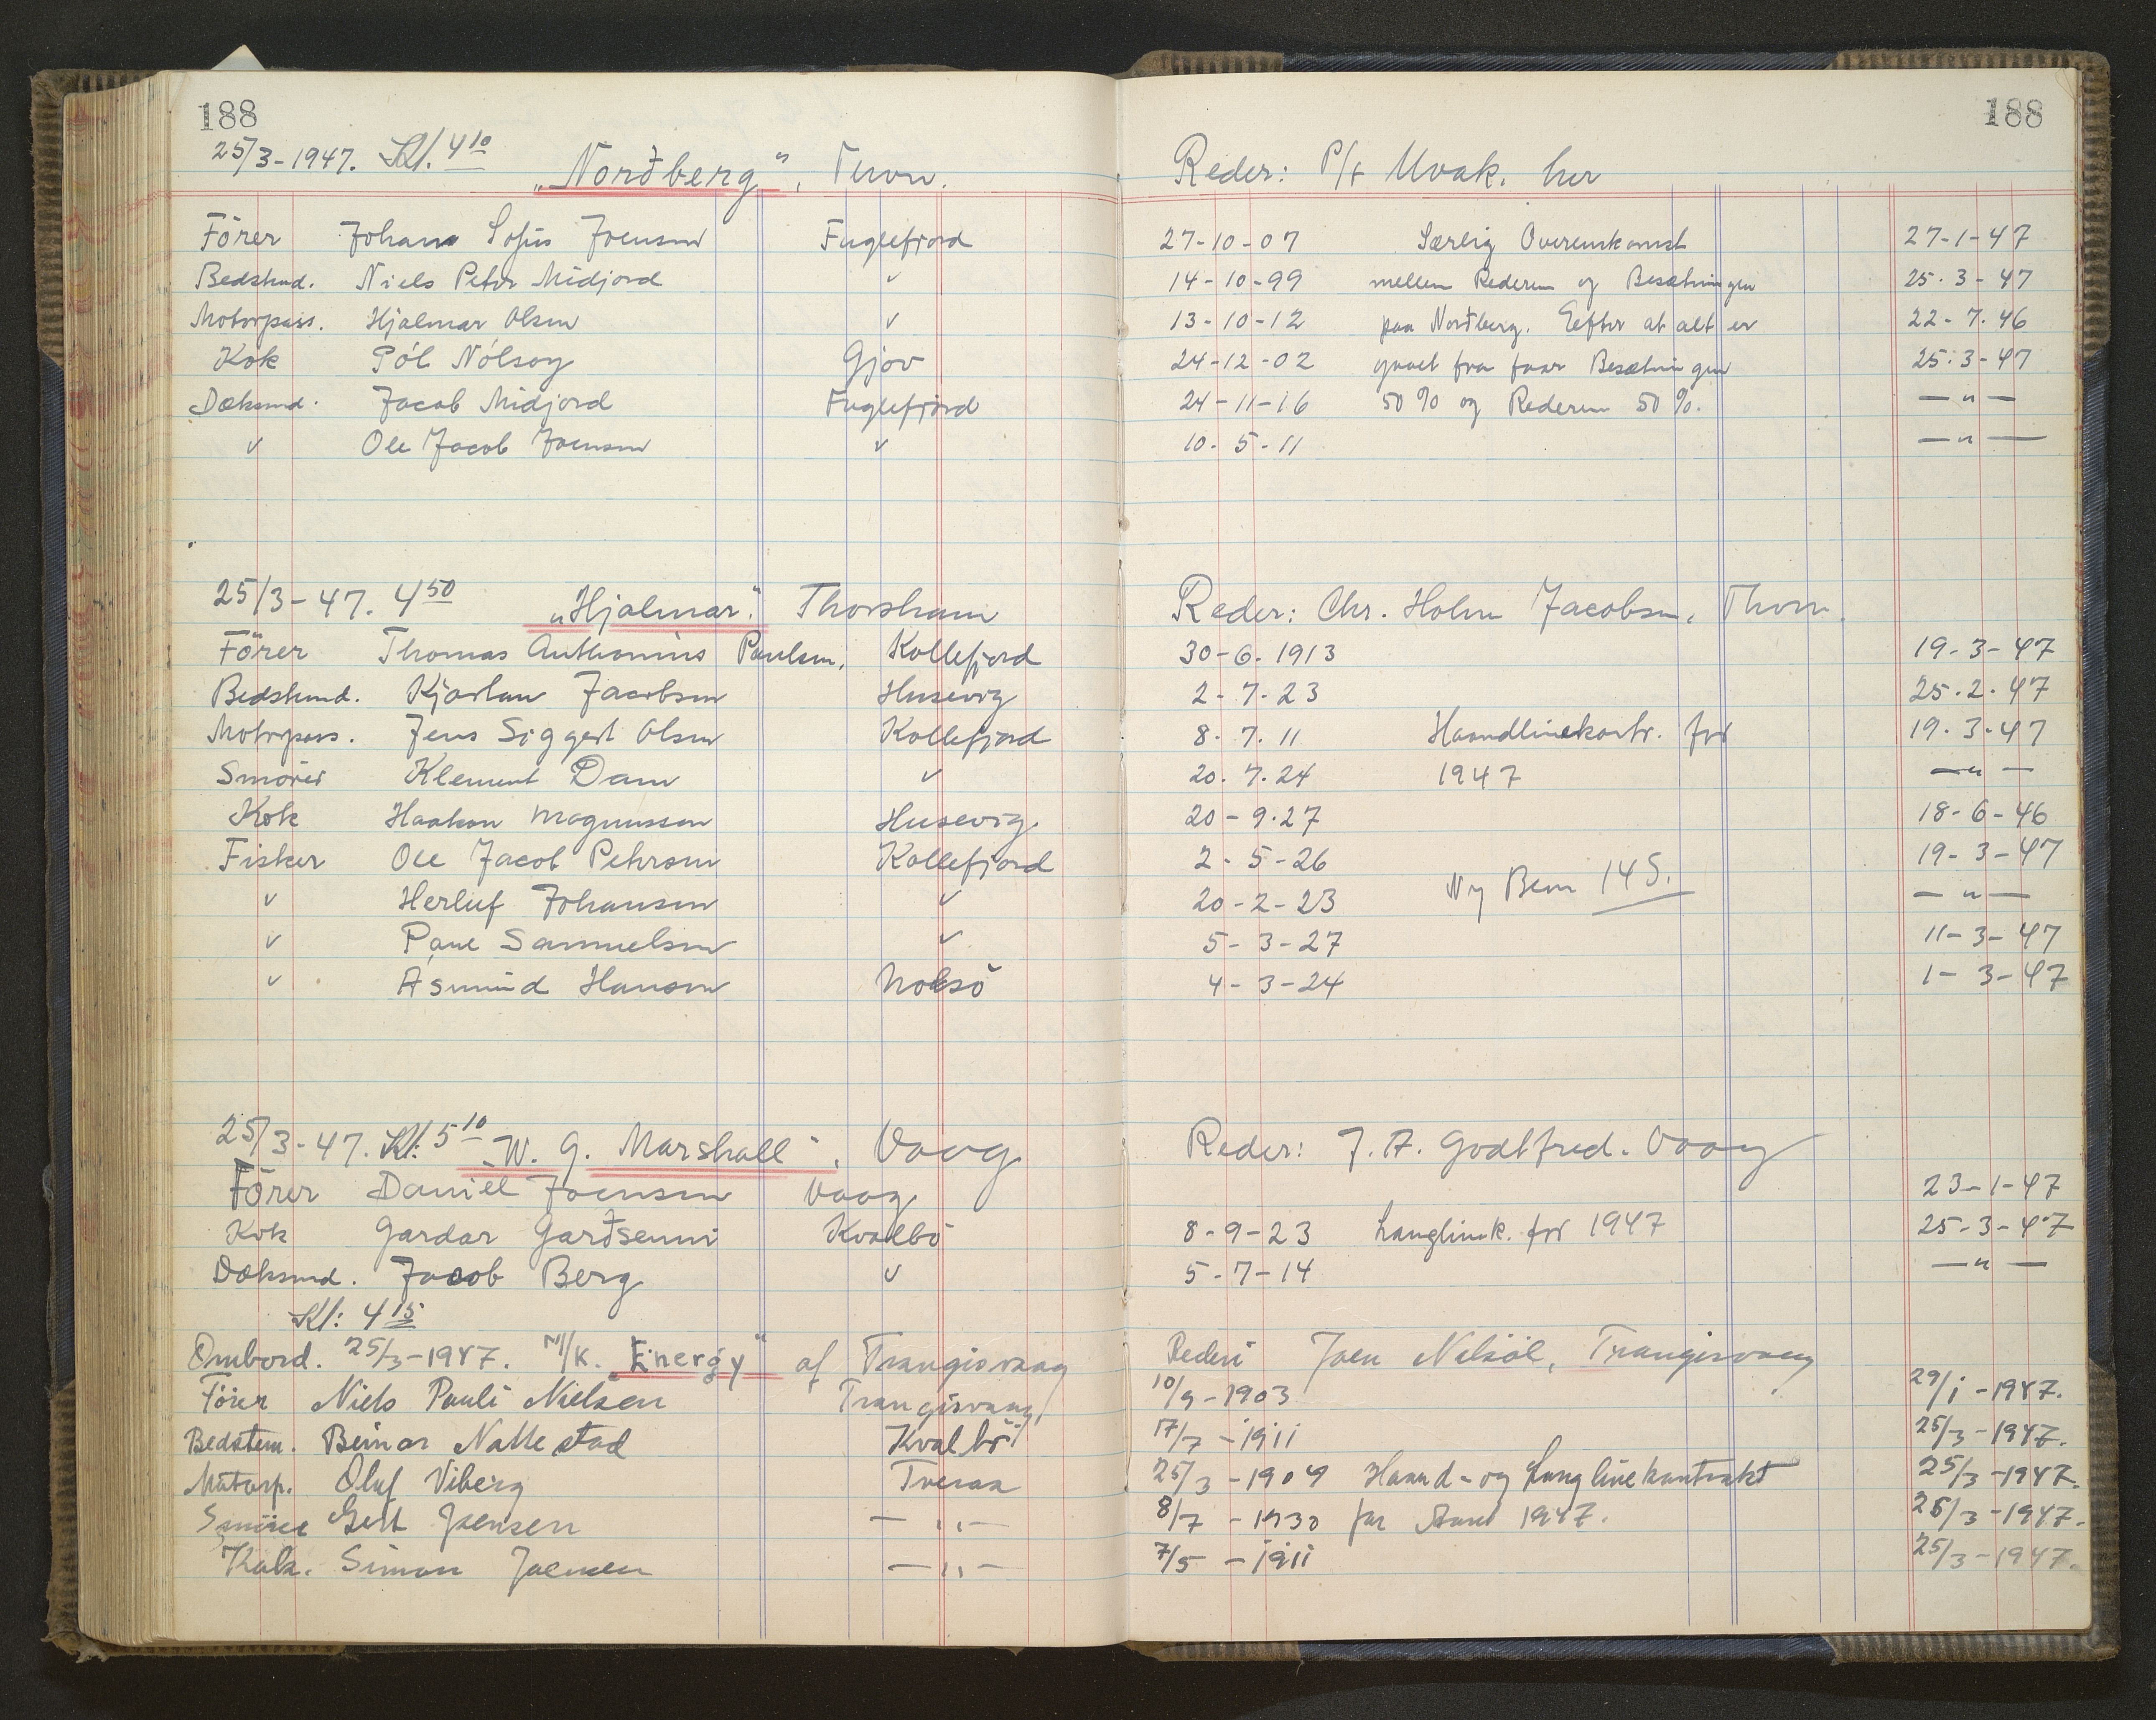 188 188
25/3-1947. Kl. 4 10 „Norðberg“, Thvn. Reder: P/f Hvak. her
Förer Johan Sofus Joensen Fuglefjord 27-10-07 Særlig Overenskomst 27-1-47
Bedstmd. Niels Peter Midjord v 14-10-99 mellem Rederen og Besætningen 25.3-47
Motorpass. Hjalmar Olsen v 13-10-12 paa Norðberg. Eefter at alt er 22-7.46
Kok Pól Nólsoy Gjov 24-12-02 gaaet fra faar Besætningen 25.3-47
Dæksmd. Jacob Midjord Fuglefjord 24-11-16 50% og Rederen 50%. — " —
v Ole Jacob Joensen v 10-5-11 — " —
25/3-47. 4 50 „Hjalmar“. Thorshavn Reder: Chr. Holm Jacobsen, Thvn.
Förer Thomas Anthonius Poulsen, Kollefjord 30-6-1913 19-3-47
Bedstemd. Kjartan Jacobsen Husevig 2-7-23 25.2.47
Motorpass. Jens Siggert Olsen Kollefjord 8-7.11 Haandlinekontr. for 19.3-47
Smörer Klement Dam v 20.7.24 1947 — " —
Kok Haakon Magnussen Husevig. 20-9.27 18-6-46
Fisker Ole Jacob Petersen Kollefjord 2-5-26 19-3-47
v Herluf Johansen v 20-2-23 Ny Bem 145. — " —
v Poul Samuelsen v 5-3-27 11-3-47
v Ásmund Hansen Nolsö 4-3-24 1-3-47
25/3-47. Kl: 5 10 „W. G. Marshall“, Vaag Reder: J. A. Godtfred. Vaag
Förer Daniel Joensen Vaag 23-1-47
Kok Gardar Garðsenni Kvalbö 8-9-23 Langlinek. for 1947 25-3-47
Dæksmd. Jacob Berg v 5-7-14 — " —
Kl: 4 15
Ombord. 25/3-1947. M/K. „Energy“ af Trangisvaag Rederi Joen Nolsöe, Trangisvaag
Förer Niels Pauli Nielsen Trangisvaag 10/9-1903 29/1-1947.
Bedstem. Beinar Nattestad Kvalbö 17/7-1911 25/3-1947.
Motorp. Oluf Viberg Tveraa 25/3-1909 Haand- og Langlinekontrakt 25/3-1947.
Smörer Gert Joensen — " — 8/7-1930 for Aaret 1947. 25/3-1947.
Kok. Simon Joensen — " — 7/5-1911 25/3-1947.